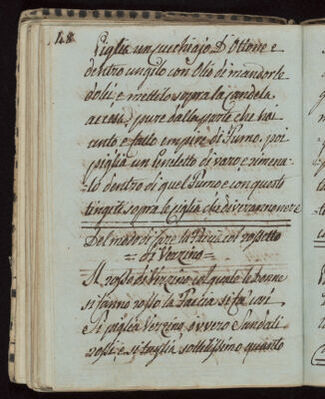 48
Piglia un cucchiajo D. Ottone e
dentro ungilo con Olio di mandorle
dolci, e mettilo sopra la candela
accesa, pure dalla parte che hai
unto e fallo empire di Fumo, poi
piglia un Peneletto di varo e rimena-
lo dentro di quel Fumo e con questo
tingiti sopra le Ciglia che diverran nere
Del modo di fare la Faccia col rossetto
= di Verzino =
Il rosso di Verzino col quale le Donne
si fanno rosso la Faccia si fa così
Si piglia Verzino, ovvero Sandali
rossi, e si taglia sottilissimo quanto